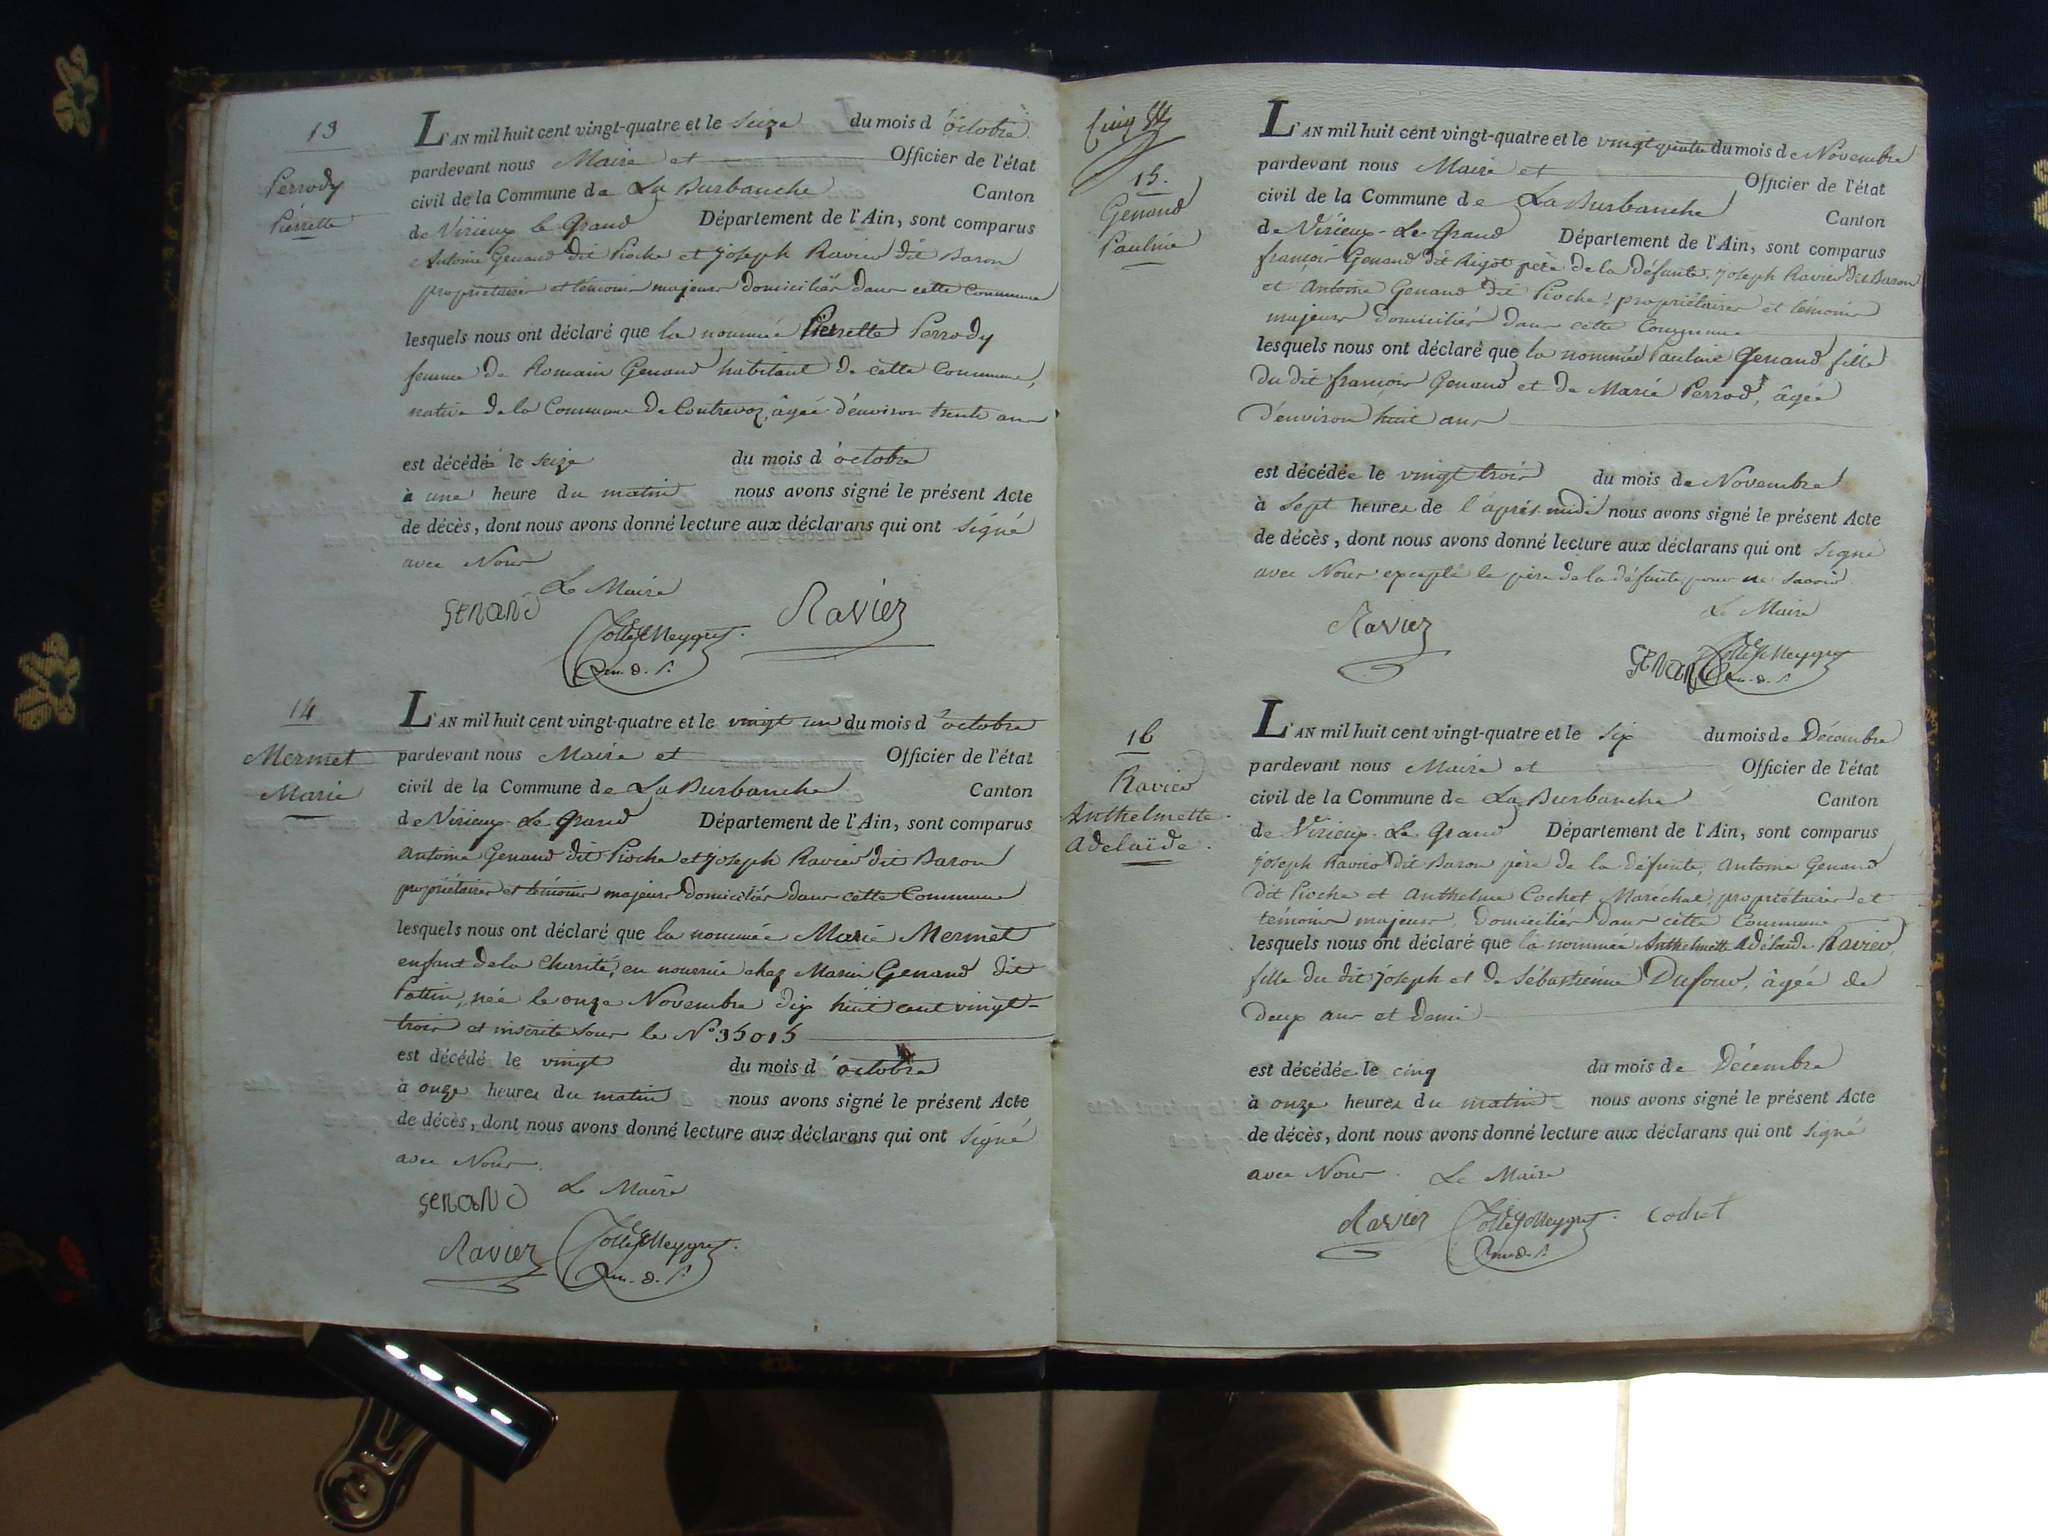 13
Perrody
Pierrette
L'AN mil huit cent vingt-quatre et le seize du mois d'octobre
pardevant nous Maire et Officier de l'état
civil de la Commune de La Burbanche Canton
de Virieux le Grand Département de l'Ain, sont comparus
Antoine Genand dit Pioche et Joseph Ravier dit Baron
propriétaires et témoins majeurs domiciliés dans cette Commune
lesquels nous ont déclaré que la nommée Pierrette Perrody
femme de Romain Genand habitant de cette Commune,
native de la Commune de Contrevoz, âgée d'environ trente ans
est décédée le seize du mois d'octobre
à une heure du matin nous avons signé le présent Acte
de décès, dont nous avons donné lecture aux déclarans qui ont signé
avec Nous
Le Maire
GENAND
Ravier
14
Mermet
Marie
L'AN mil huit cent vingt-quatre et le vingt un du mois d'octobre
pardevant nous Maire et Officier de l'état
civil de la Commune de La Burbanche Canton
de Virieux-Le-Grand Département de l'Ain, sont comparus
Antoine Genand dit Pioche et Joseph Ravier dit Baron
propriétaires et témoins majeurs domiciliés dans cette Commune
lesquels nous ont déclaré que la nommée Marie Mermet
enfant de la Charité, en nourrice chez Marin Genand dit
Pattin, née le onze Novembre dix huit cent vingt-
trois et inscrite sous le N° 35015
est décédé le vingt du mois d'octobre
à onze heures du matin nous avons signé le présent Acte
de décès, dont nous avons donné lecture aux déclarans qui ont signé
avec Nous.
GENAND Le Maire
Ravier
Cinq
15.
Genand
Pauline
L'AN mil huit cent vingt-quatre et le vingt quatre du mois de Novembre
pardevant nous Maire et Officier de l'état
civil de la Commune de La Burbanche Canton
de Virieux-Le-Grand Département de l'Ain, sont comparus
françois Genand dit Rigot père de la défunte, Joseph Ravier dit Baron
et Antoine Genand dit Pioche, propriétaires et témoins
majeurs domiciliés dans cette Commune
lesquels nous ont déclaré que la nommée Pauline Genand fille
du dit françois Genand et de Marie Perrod, âgée
d'environ huit ans
est décédée le vingt trois du mois de Novembre
à sept heures de l'après-midi nous avons signé le présent Acte
de décès, dont nous avons donné lecture aux déclarans qui ont signé
avec Nous excepté le père de la défunte, pour ne savoir.
Le Maire
Ravier
GENAND
16
Ravier
Anthelmette
Adelaïde.
L'AN mil huit cent vingt-quatre et le six du mois de Décembre
pardevant nous Maire et Officier de l'état
civil de la Commune de La Burbanche Canton
de Virieux-Le Grand Département de l'Ain, sont comparus
Joseph Ravier dit Baron père de la défunte, Antoine Genand
dit Pioche et Anthelme Cochet Maréchal, propriétaires et
témoins majeurs domiciliés dans cette Commune
lesquels nous ont déclaré que la nommée Anthelmette Adélaïde Ravier,
fille du dit Joseph et de Sébastienne Dufour, âgée de
deux ans et demi
est décédée le cinq du mois de Décembre
à onze heures du matin nous avons signé le présent Acte
de décès, dont nous avons donné lecture aux déclarans qui ont signé
avec Nous. Le Maire
Ravier
Cochet